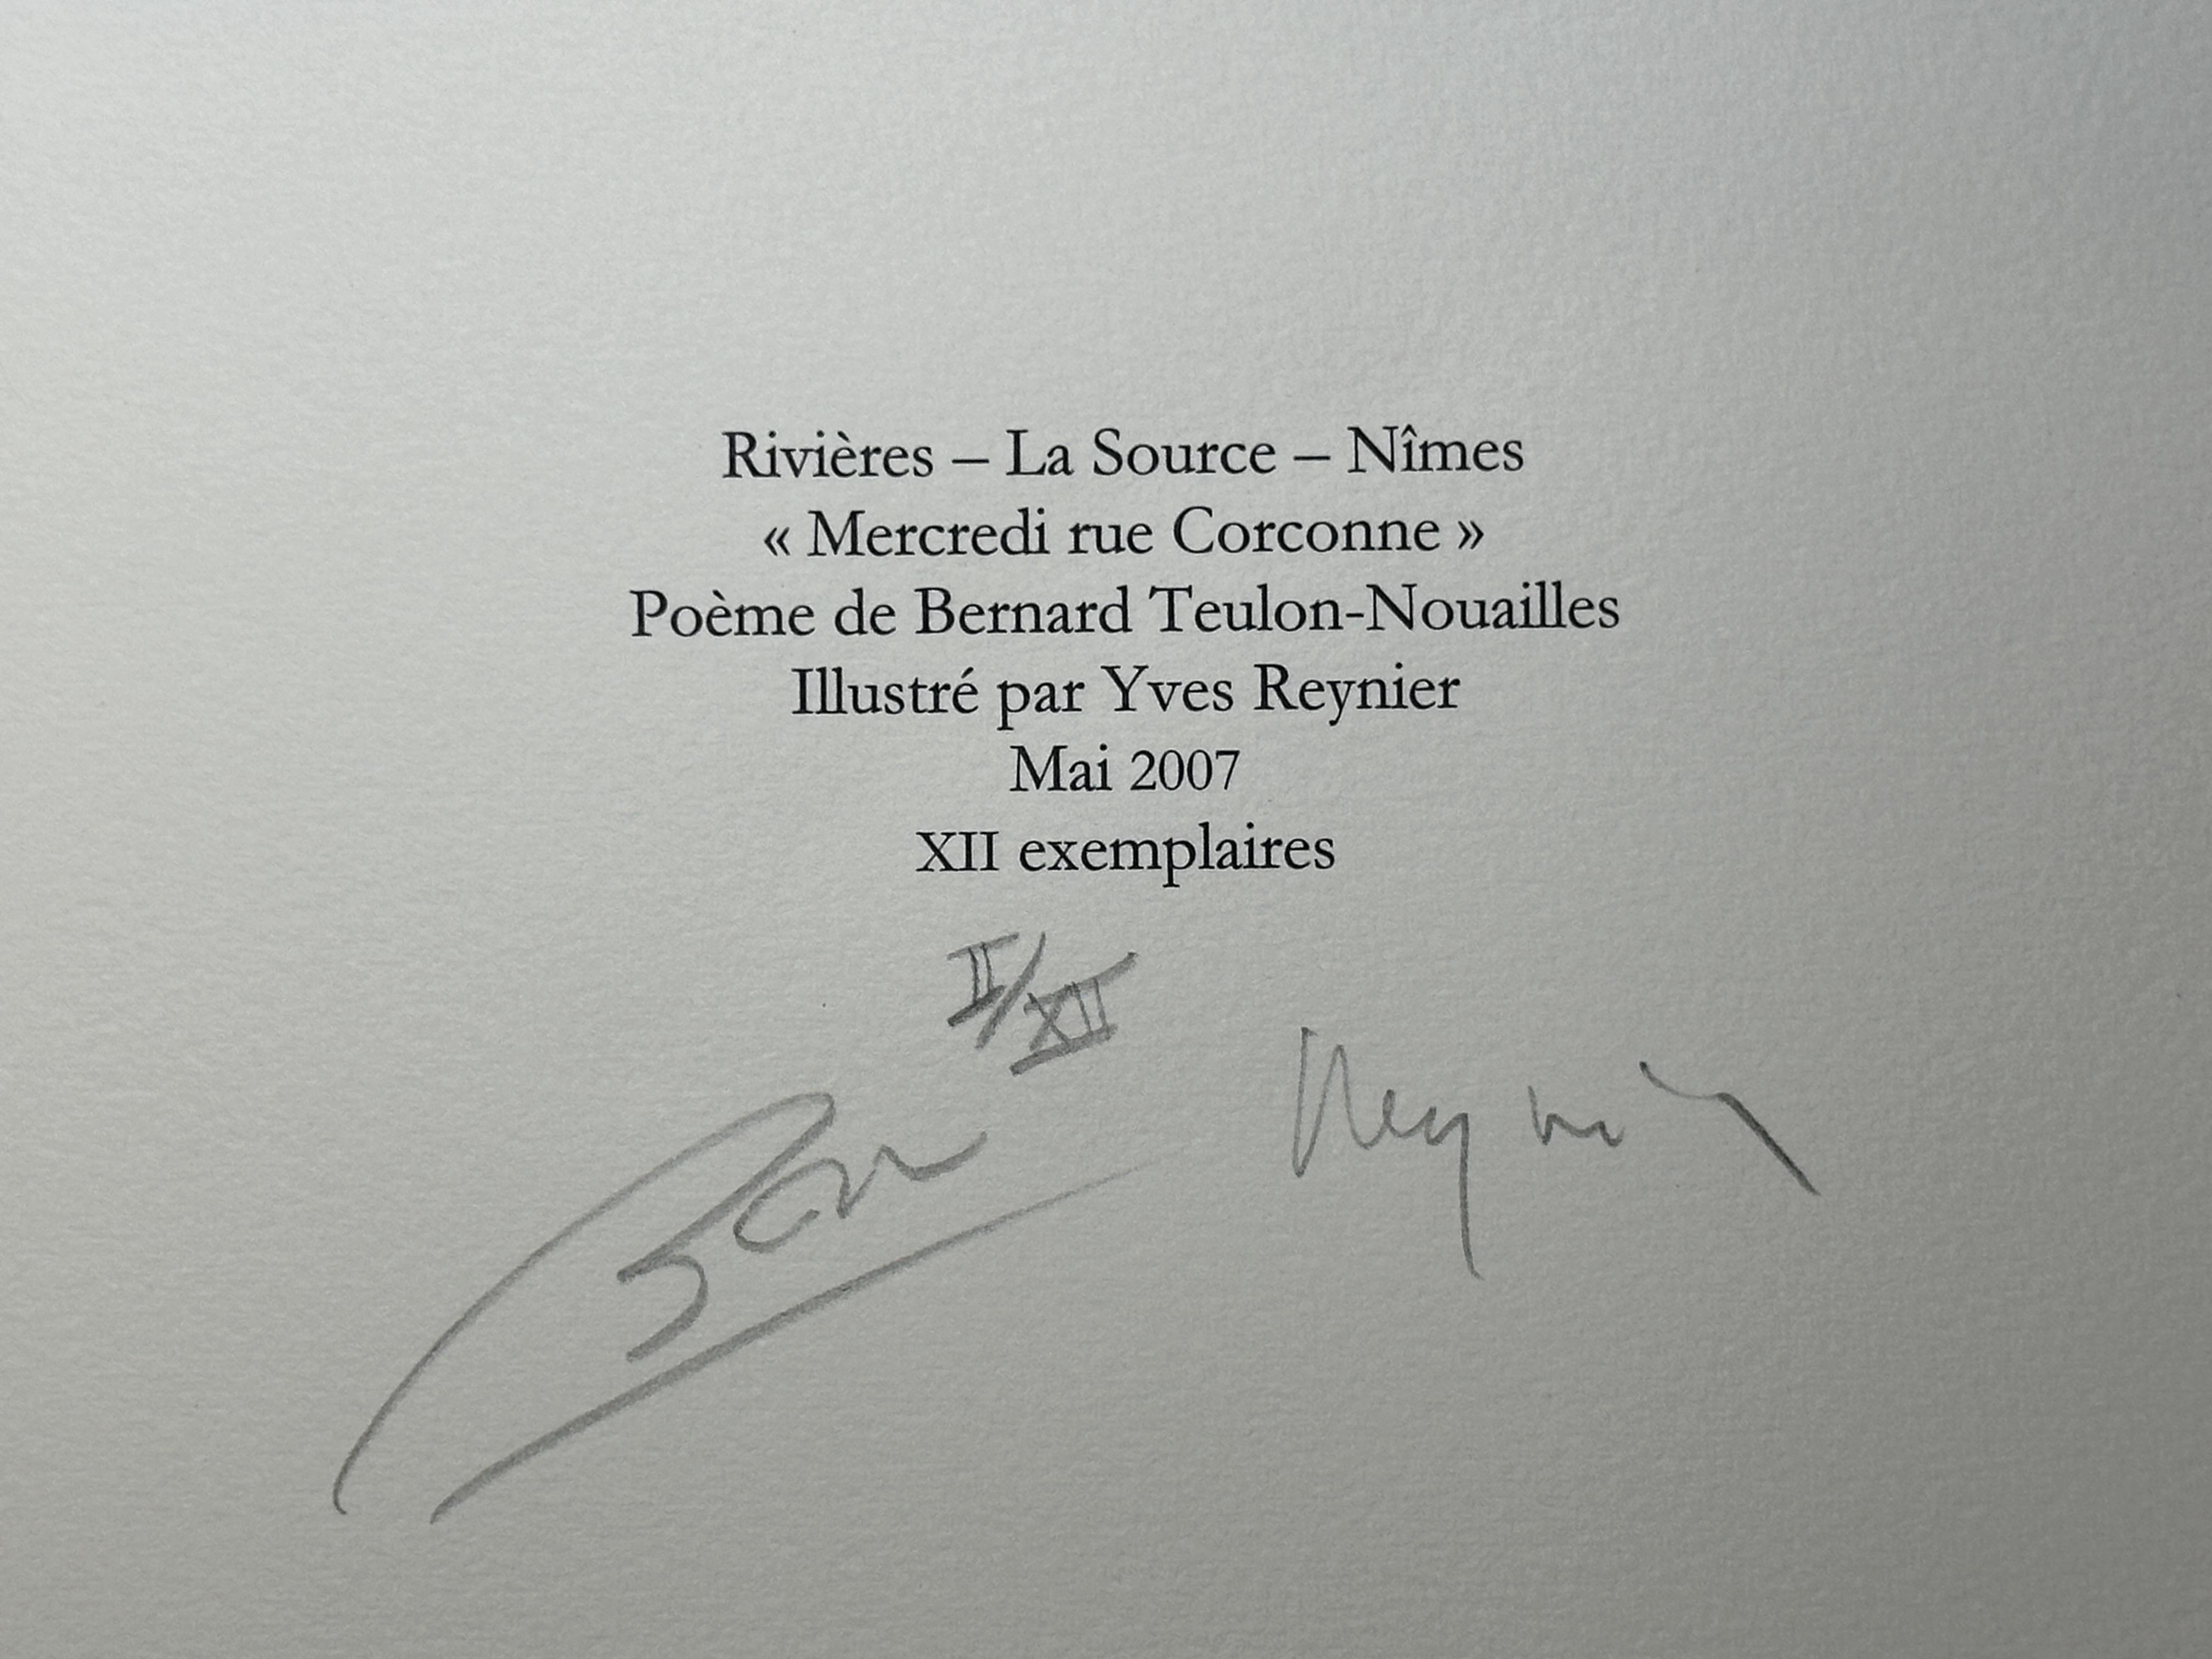 Rivières – La Source – Nîmes
« Mercredi rue Corconne »
Poème de Bernard Teulon-Nouailles
Illustré par Yves Reynier
Mai 2007
XII exemplaires
II/XII
Reynier